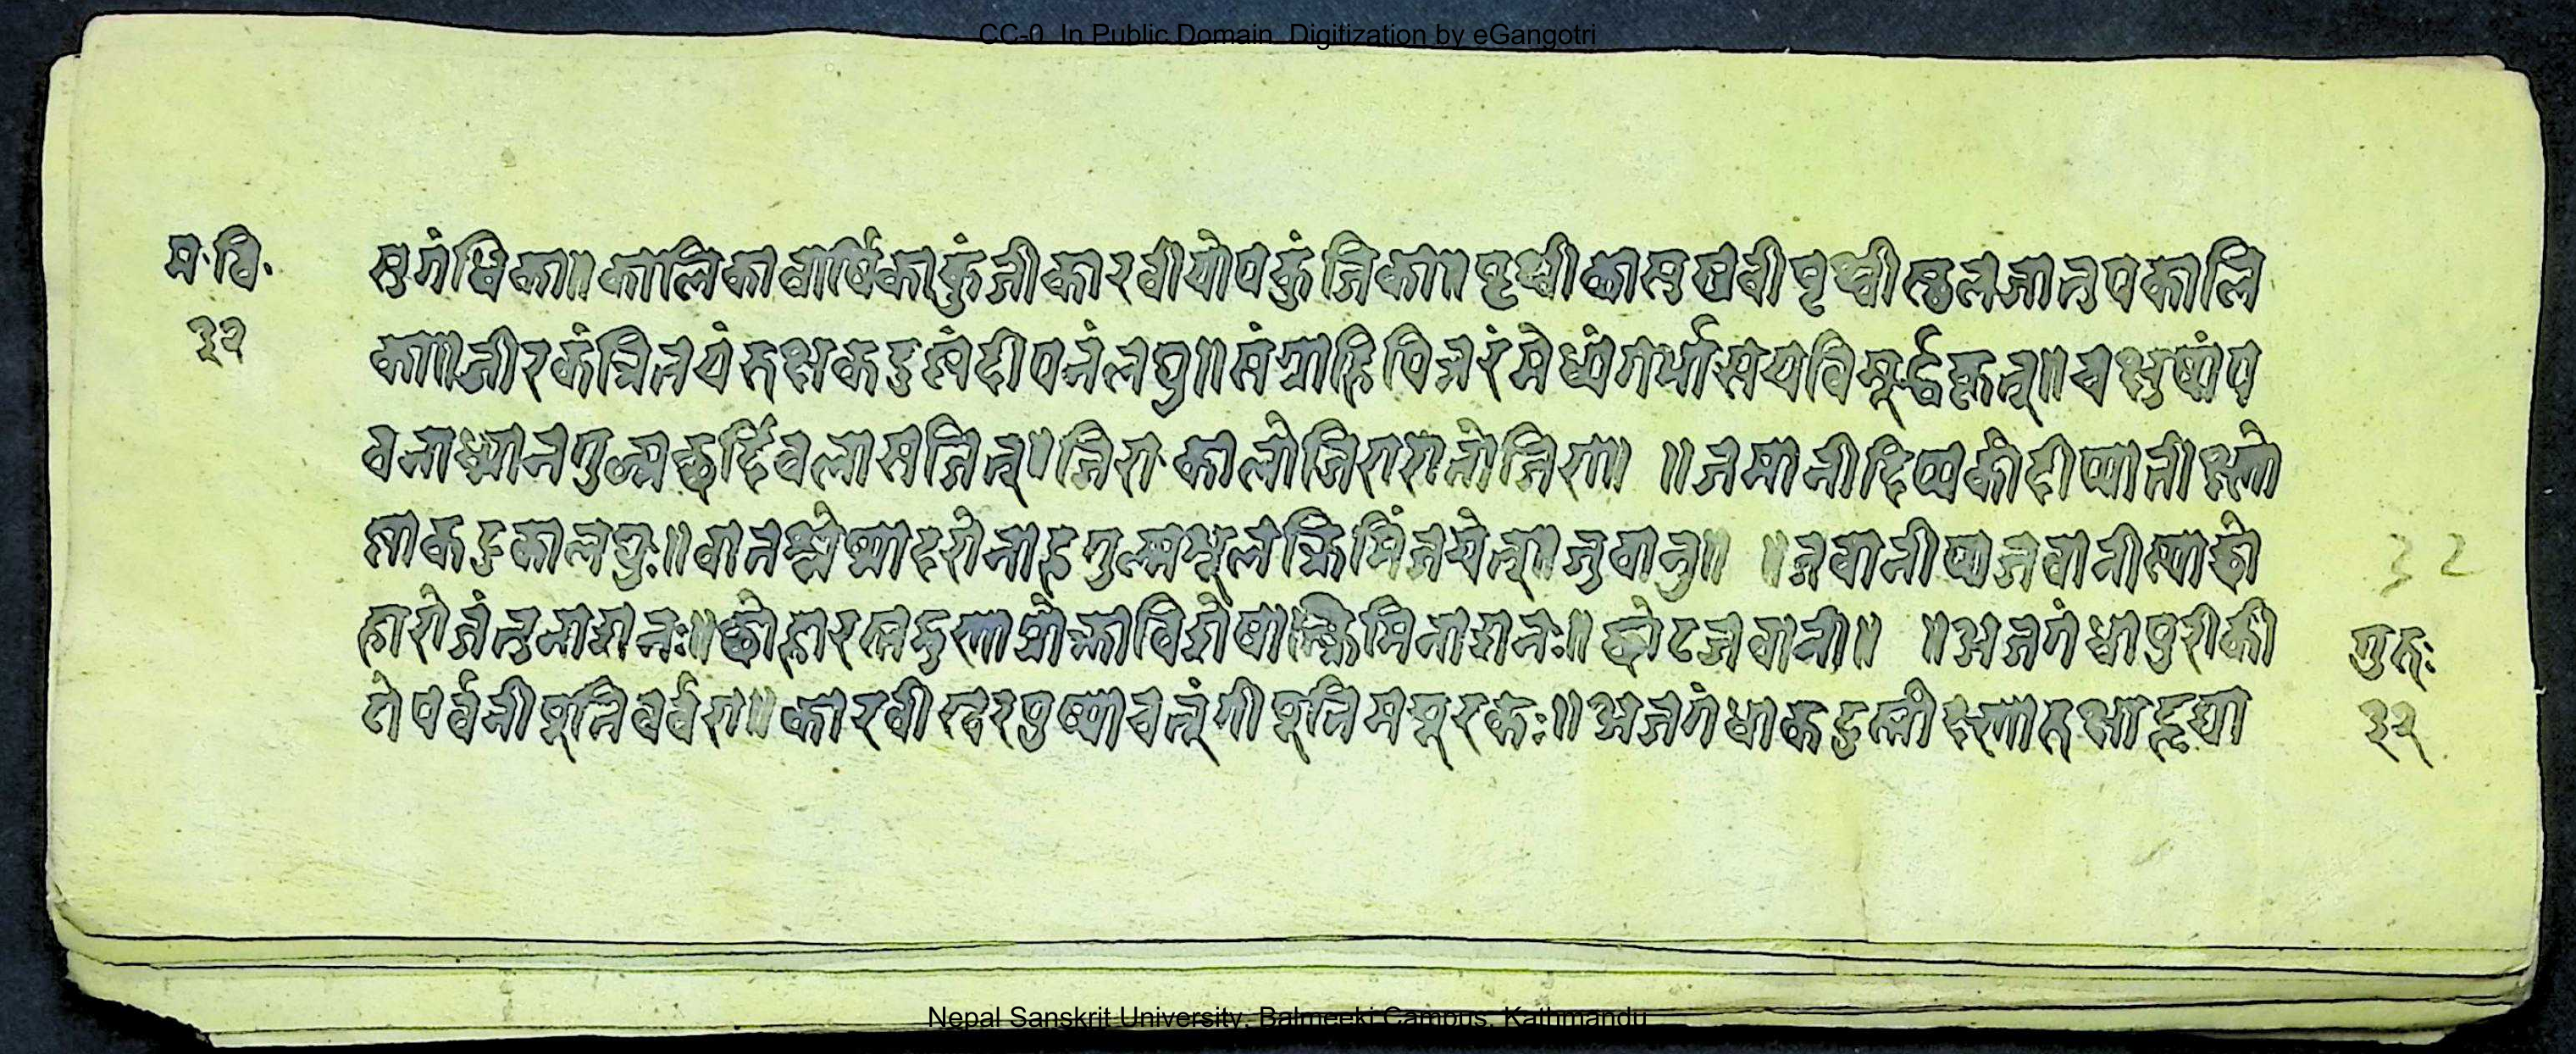 CC-0. In Public Domain. Digitization by eGangotri
म॰ वि॰
३२
सुगंधिका॥ कालिका वार्षिका कुंजी कारवी योपकुंजिका॥ पृथ्वीका सुषवी पृथ्वी स्थूलजातुपकालि
का॥ जीरकं त्रितयं रुक्षकटुष्णं दीपनं लघु॥ संग्राहि पित्तरं मेध्यं गर्भासयविसूर्द्धकृत्॥ चक्षुष्यं प
वनाध्मानगुल्मछर्दिवलासजित्॥ जिरा कालोजिरा रातोजिरा॥ ॥ जमानी दिप्यकी दीप्यानी क्ष्लो
ष्णा कटुका लघुः॥ वातश्लेष्मोदरोनाहगुल्मशूलक्रिमिंजयेत्॥ जुवानु॥ ॥ जवानी ष्यजवानीस्याछो
हारो जंतुनाशनः॥ छोहारस्तद्गुणाप्रोक्ता विशेषात्क्रिमिनाशनः॥ छोटजवानी॥ ॥ अजगंधा पुरीकी
ते पर्वनी पूति वर्वरा॥ कारवी खरपुष्पा च तूंगी पूति मयूरकः॥ अजगंधा कटुस्तीक्ष्णा रुक्षा हृद्या
32
गुरुः
३२
Nepal Sanskrit University, Balmeeki Campus, Kathmandu